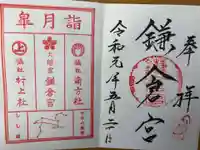 皐月詣
摂社 南方社
大塔宮 鎌倉宮
摂社 村上社
奉拝
鎌倉宮
令和元年五月